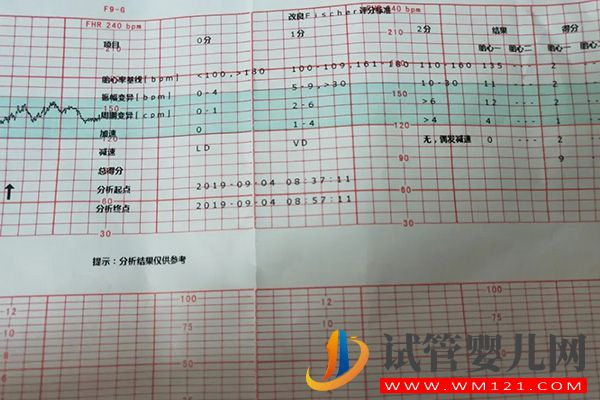 F9-G
改良Fischer评分标准
FHR 240 bpm 240 bpm
项目 0分 1分 2分 结果 得分
210 210
胎心一 胎心二 胎心一 胎心二
胎心率基线[bpm] <100,>180 100-109,161-180 110-160 135 --- 2 ---
振幅变异[bpm] 0-4 5-9,>30 10-30 11 --- 2 ---
150 150
周期变异[cpm] 0-1 2-6 >6 12 --- 2 ---
加速 0 1-4 >4 4 --- 1 ---
120 120
减速 LD VD 无,偶发减速 0 --- 2 ---
90
总得分 9 ---
分析起点 2019-09-04 08:37:11
60
分析终点 2019-09-04 08:57:11
30 30
提示:分析结果仅供参考
12 100 12 100
10 10
8 75 8 75
6
50
试管婴儿网
WWW.WM121.COM